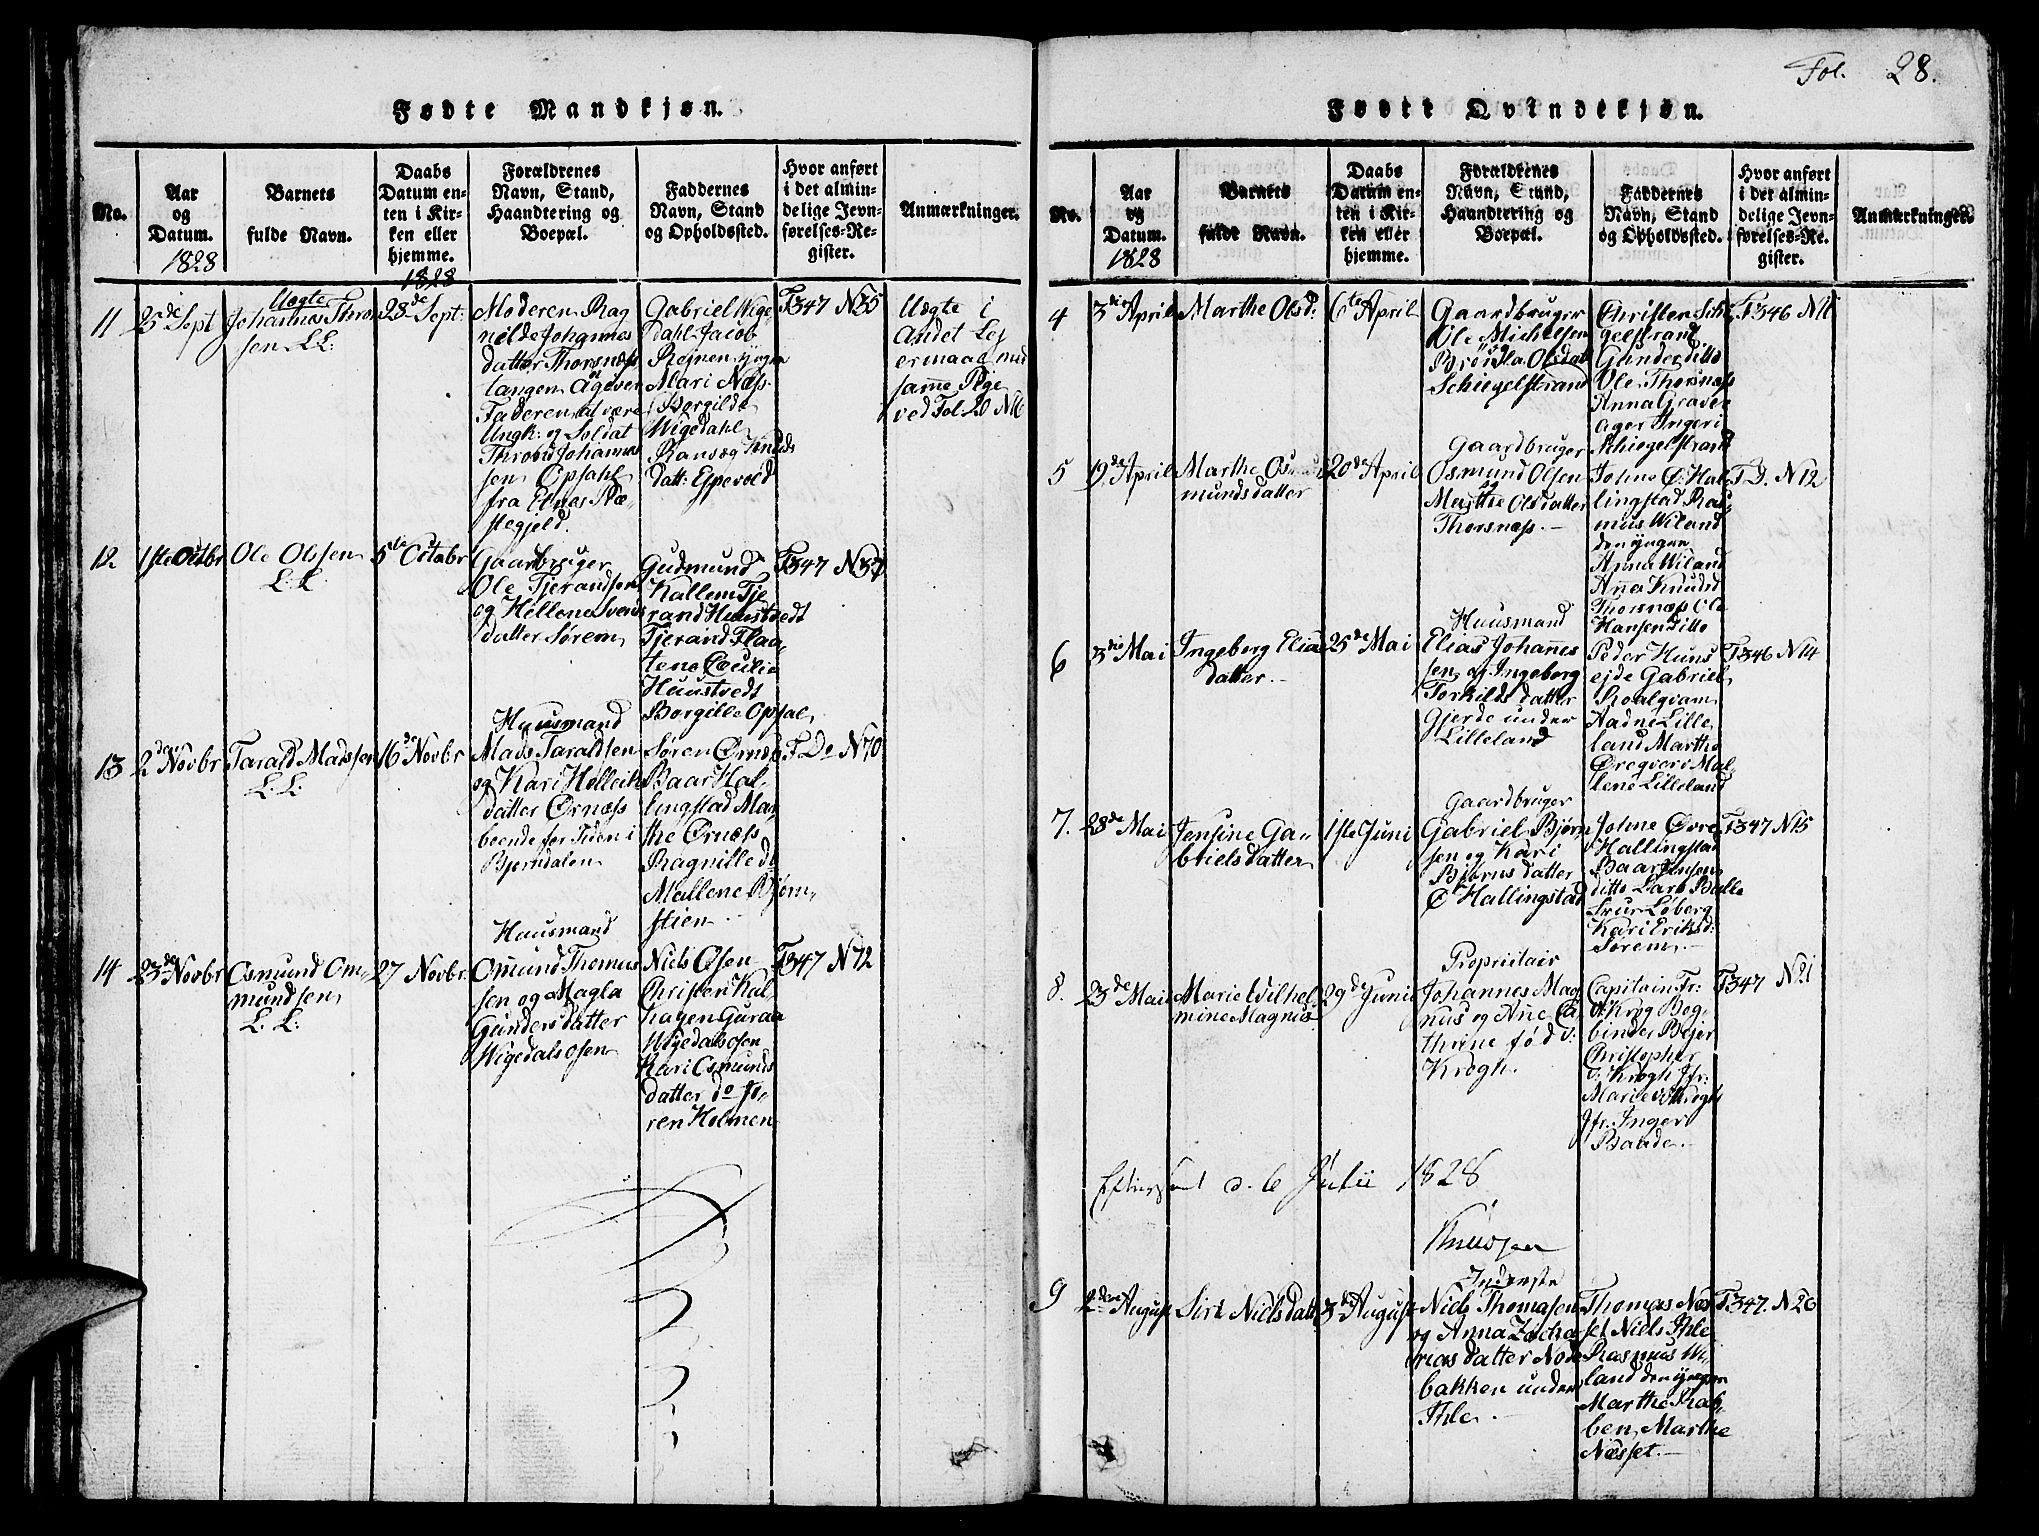 Fol. 28.
Fødte Mandkjøn.
No.
Aar
og
Datum.
1828
Barnets
fulde Navn.
Daabs
Datum en-
ten i Kir-
ken eller
hjemme.
1828
Forældrenes
Navn, Stand,
Haandtering og
Boepæl.
Faddernes
Navn, Stand
og Opholdssted.
Hvor anført
i det almin-
delige Jevn-
førelses-Re-
gister.
Anmærkninger.
11
25de Sept
Uægte
Johannes Thron
sen L.L.
28de Sept:
Moderen Rag
nilde Johannes
datter Thorsnæss
tangen Agiver
Faderen at være
Ungk: og Soldat
Thrond Johannes
sen Opsahl
fra Etnes Præ
stegjeld.
Gabriel Wige
dahl Jacob
Rejnen yngre
Mari Næs
Borgilde
Wigedahl
Ransæg Knuds
datt: Espevold
F347 N35
Uægte i
Andet Lej
ermaal med
samme Pige
ved Fol 20 N16
12
1ste Octbr
Ole Olssen
L: L:
5te Octobr
Gaarbruger
Ole Tjerandsen
og Hellene Svends
datter Sørem
Gudmund
Kallem Tje
rand Huustvedt
Tjerand Flaa-
tene Cecilie
Huustvedt
Borgille Opsal
F347 N37
13
2den Novbr
Tarald Madssen
L: L:
16de Novbr
Huusmand
Mads Taraldsen
og Kari Helleiks
datter Ørnæss
beende for Tiden i
Bjerndalen
Søren Ørnæs
Baar Hal-
lingstad Mar-
the Ørnæss
Ragnille do
Mallene Bjørn-
stien
F. Do N70
14
23de Novbr
Osmund Om-
mundsen
L: L:
27 Novbr.
Huusmand
Omund Thomas
sen og Magla
Gunders datter
Wigedalsosen
Niels Osen
Christen Kal-
hagen Guraa
Wigedalsosen
Kari Osmunds
datter do Jo-
ren Holmen
F347 N72
Fødte Qvindekjøn.
No.
Aar
og
Datum.
1828
Barnets
fulde Navn.
Daabs
Datum en-
ten i Kir-
ken eller
hjemme.
Forældrenes
Navn, Stand,
Haandtering og
Boepæl.
Faddernes
Navn, Stand
og Opholdssted.
Hvor anført
i det almin-
delige Jevn-
førelses-Re-
gister.
Anmærkninger.
4
3die April
Marthe Olsd:
6te April
Gaardbruger
Ole Michelsen
og Brøità Olsdat
Schiegelstrand
Christen Schi
gelstrand
Gunder ditto
Ole Thorsnæs
Anna Graver
ager Ingeri
Schiegelstrand
F346 N11
5
19de April
Marthe Os
munds datter
20de April
Gaardbruger
Osmund Olsen
og Marthe Olsdatter
Thorsnæss.
Johne Ø: Hal
lingstad Ras
mus Wiland
den yngre
Anna Wiland
Anna Knudsd
Thorsnæs Ole
Hansen ditto
F D. N12
6
3die Mai
Ingeborg Elia
datter
25de Mai
Huusmand
Elias Johannes
sen og Ingeborg
Torkilds datter
Gjerde under
Lilleland
Peder Huns
ejde Gabriel
Roalqvam
Aadne Lille
land Marthe
Øregveri Mal-
lene Lilleland
F346 N14
7.
28de Mai
Jensine Ga-
brielsdatter
1ste Juni
Gaardbruger
Gabriel Bjørn
sen og Kari
Bjørns datter
Ø Hallingstad
Johne Øvre
Hallingstad
Baar Jensen
ditto Lars Balle
Siur Løberg
Kari Eriksd:
Sørem
F347 N15
8.
23de Mai
Marie Wilhel
mine Magnus
29de Juni
Proprietair
Johannes Mag
nus og Ane Ca
thrine fød v:
Krogh.
Capitain Fr:
v Krog Bog-
binder Bejer
Christopher
v: Krogh Jfr:
Marie v Krogh
Jfr. Inger
Baade.
F347 N21
Efterseet d. 6 Julii 1828
Knudsen
9
2den August
Siri Nielsdatt
3de August
Inderste
Niels Thomasen
og Anna Zacha
rias datter Node
bakken under
Ihle
Thomas Næs
set Niels Ihle
Rasmus Wi
land den yngre
Marthe Rab-
ben, Marthe
Næsset.
F.347. N26